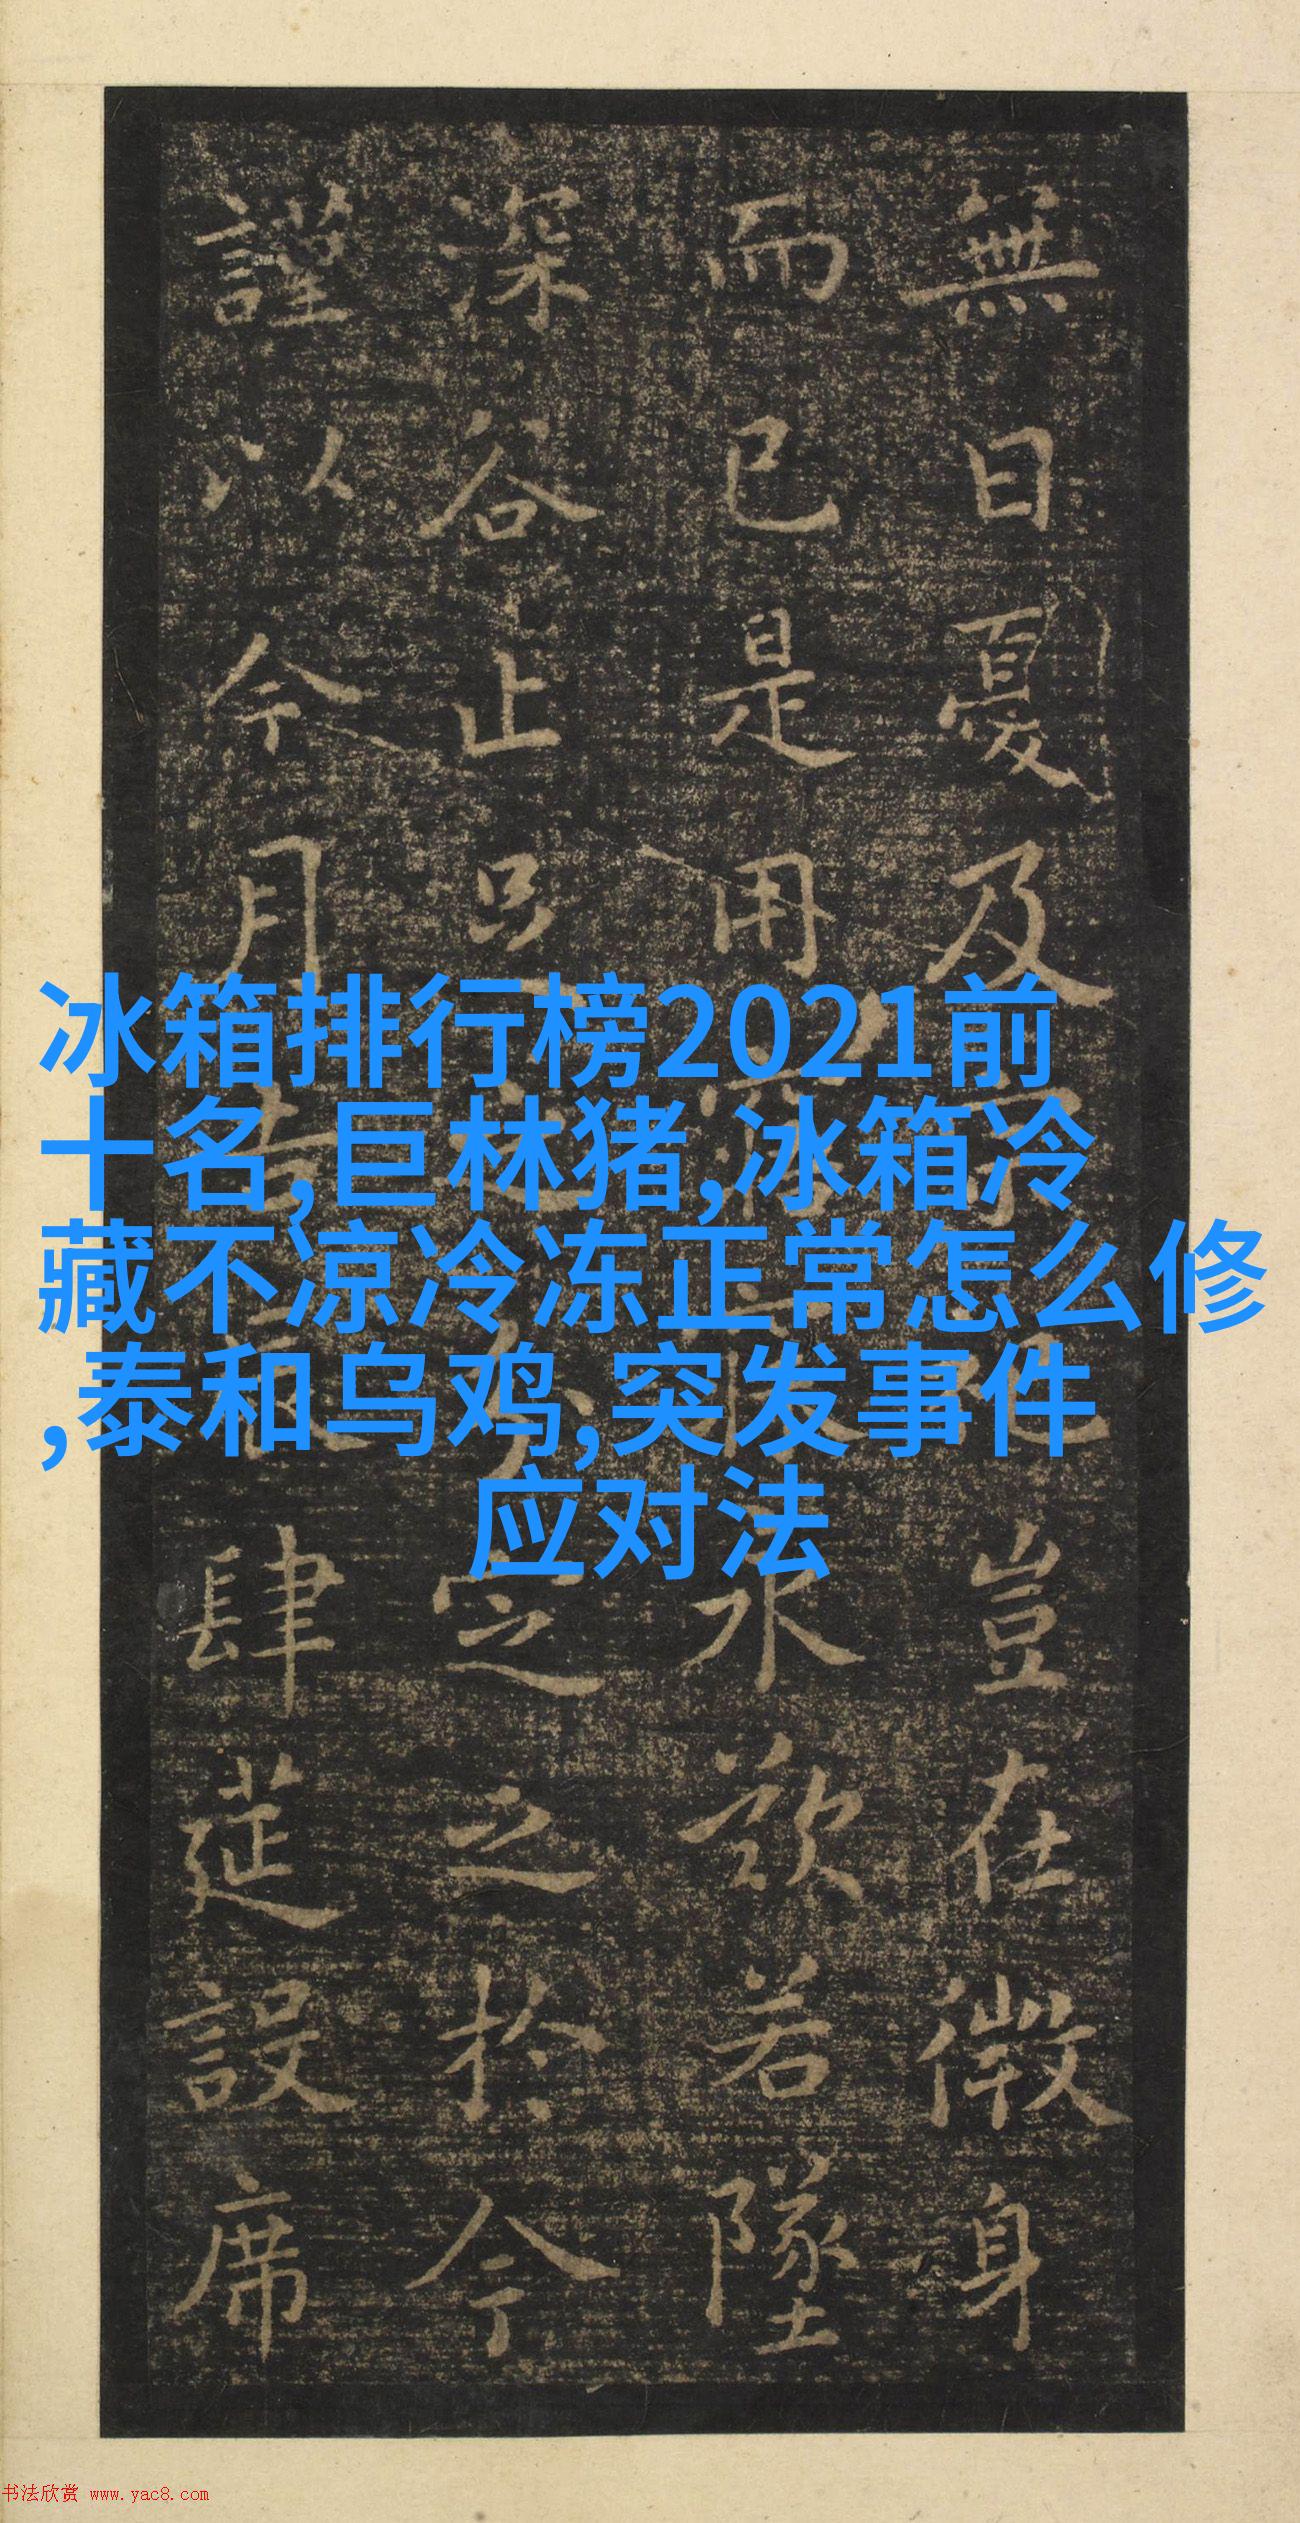 無日憂及宗祀豈在微身
而已是用寤寐永歎若墜
深谷止足之分定之於今
謹以今月吉辰肆筵設席
冰箱排行榜2021前
十名,巨林猪,冰箱冷
藏不凉冷冻正常怎么修
,泰和乌鸡,突发事件
应对法
书法欣赏 www.yac8.com